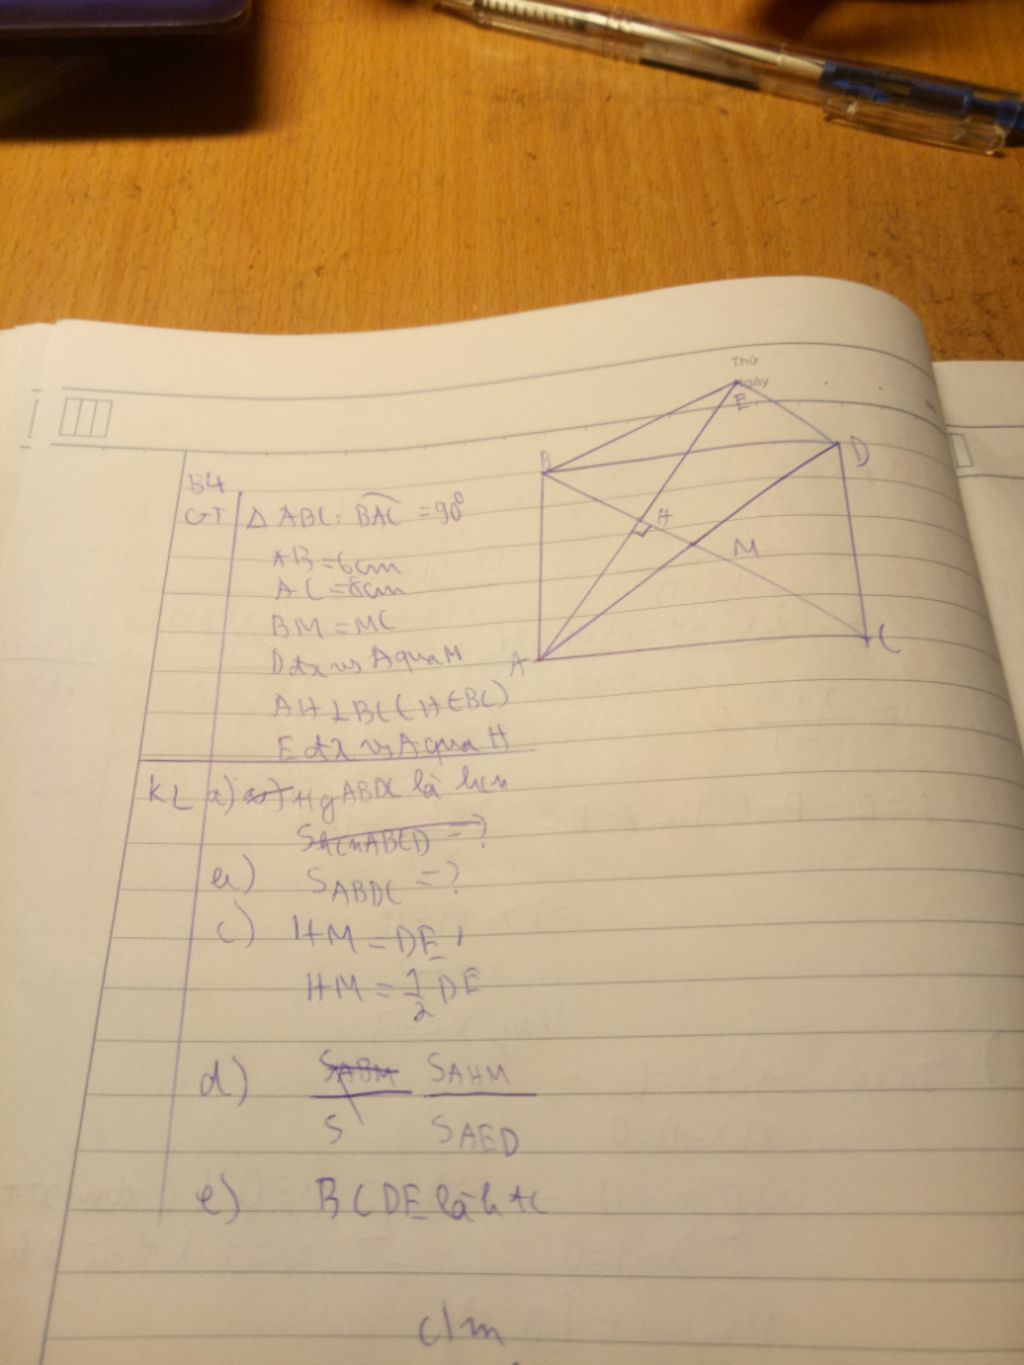 Thứ
Ngày
B4
GT ΔABC: BAC = 90°
AB = 6cm
AC = 8cm
BM = MC
D đx vs A qua M
AH ⊥ BC (H ∈ BC)
E đx vs A qua H
KL a) ABDC là hcn
SABDC = ?
c) HM = DE
HM = 1/2 DE
d) SAHM / SAED
e) BCDE là htc
c/m
B
E
D
H
M
A
C